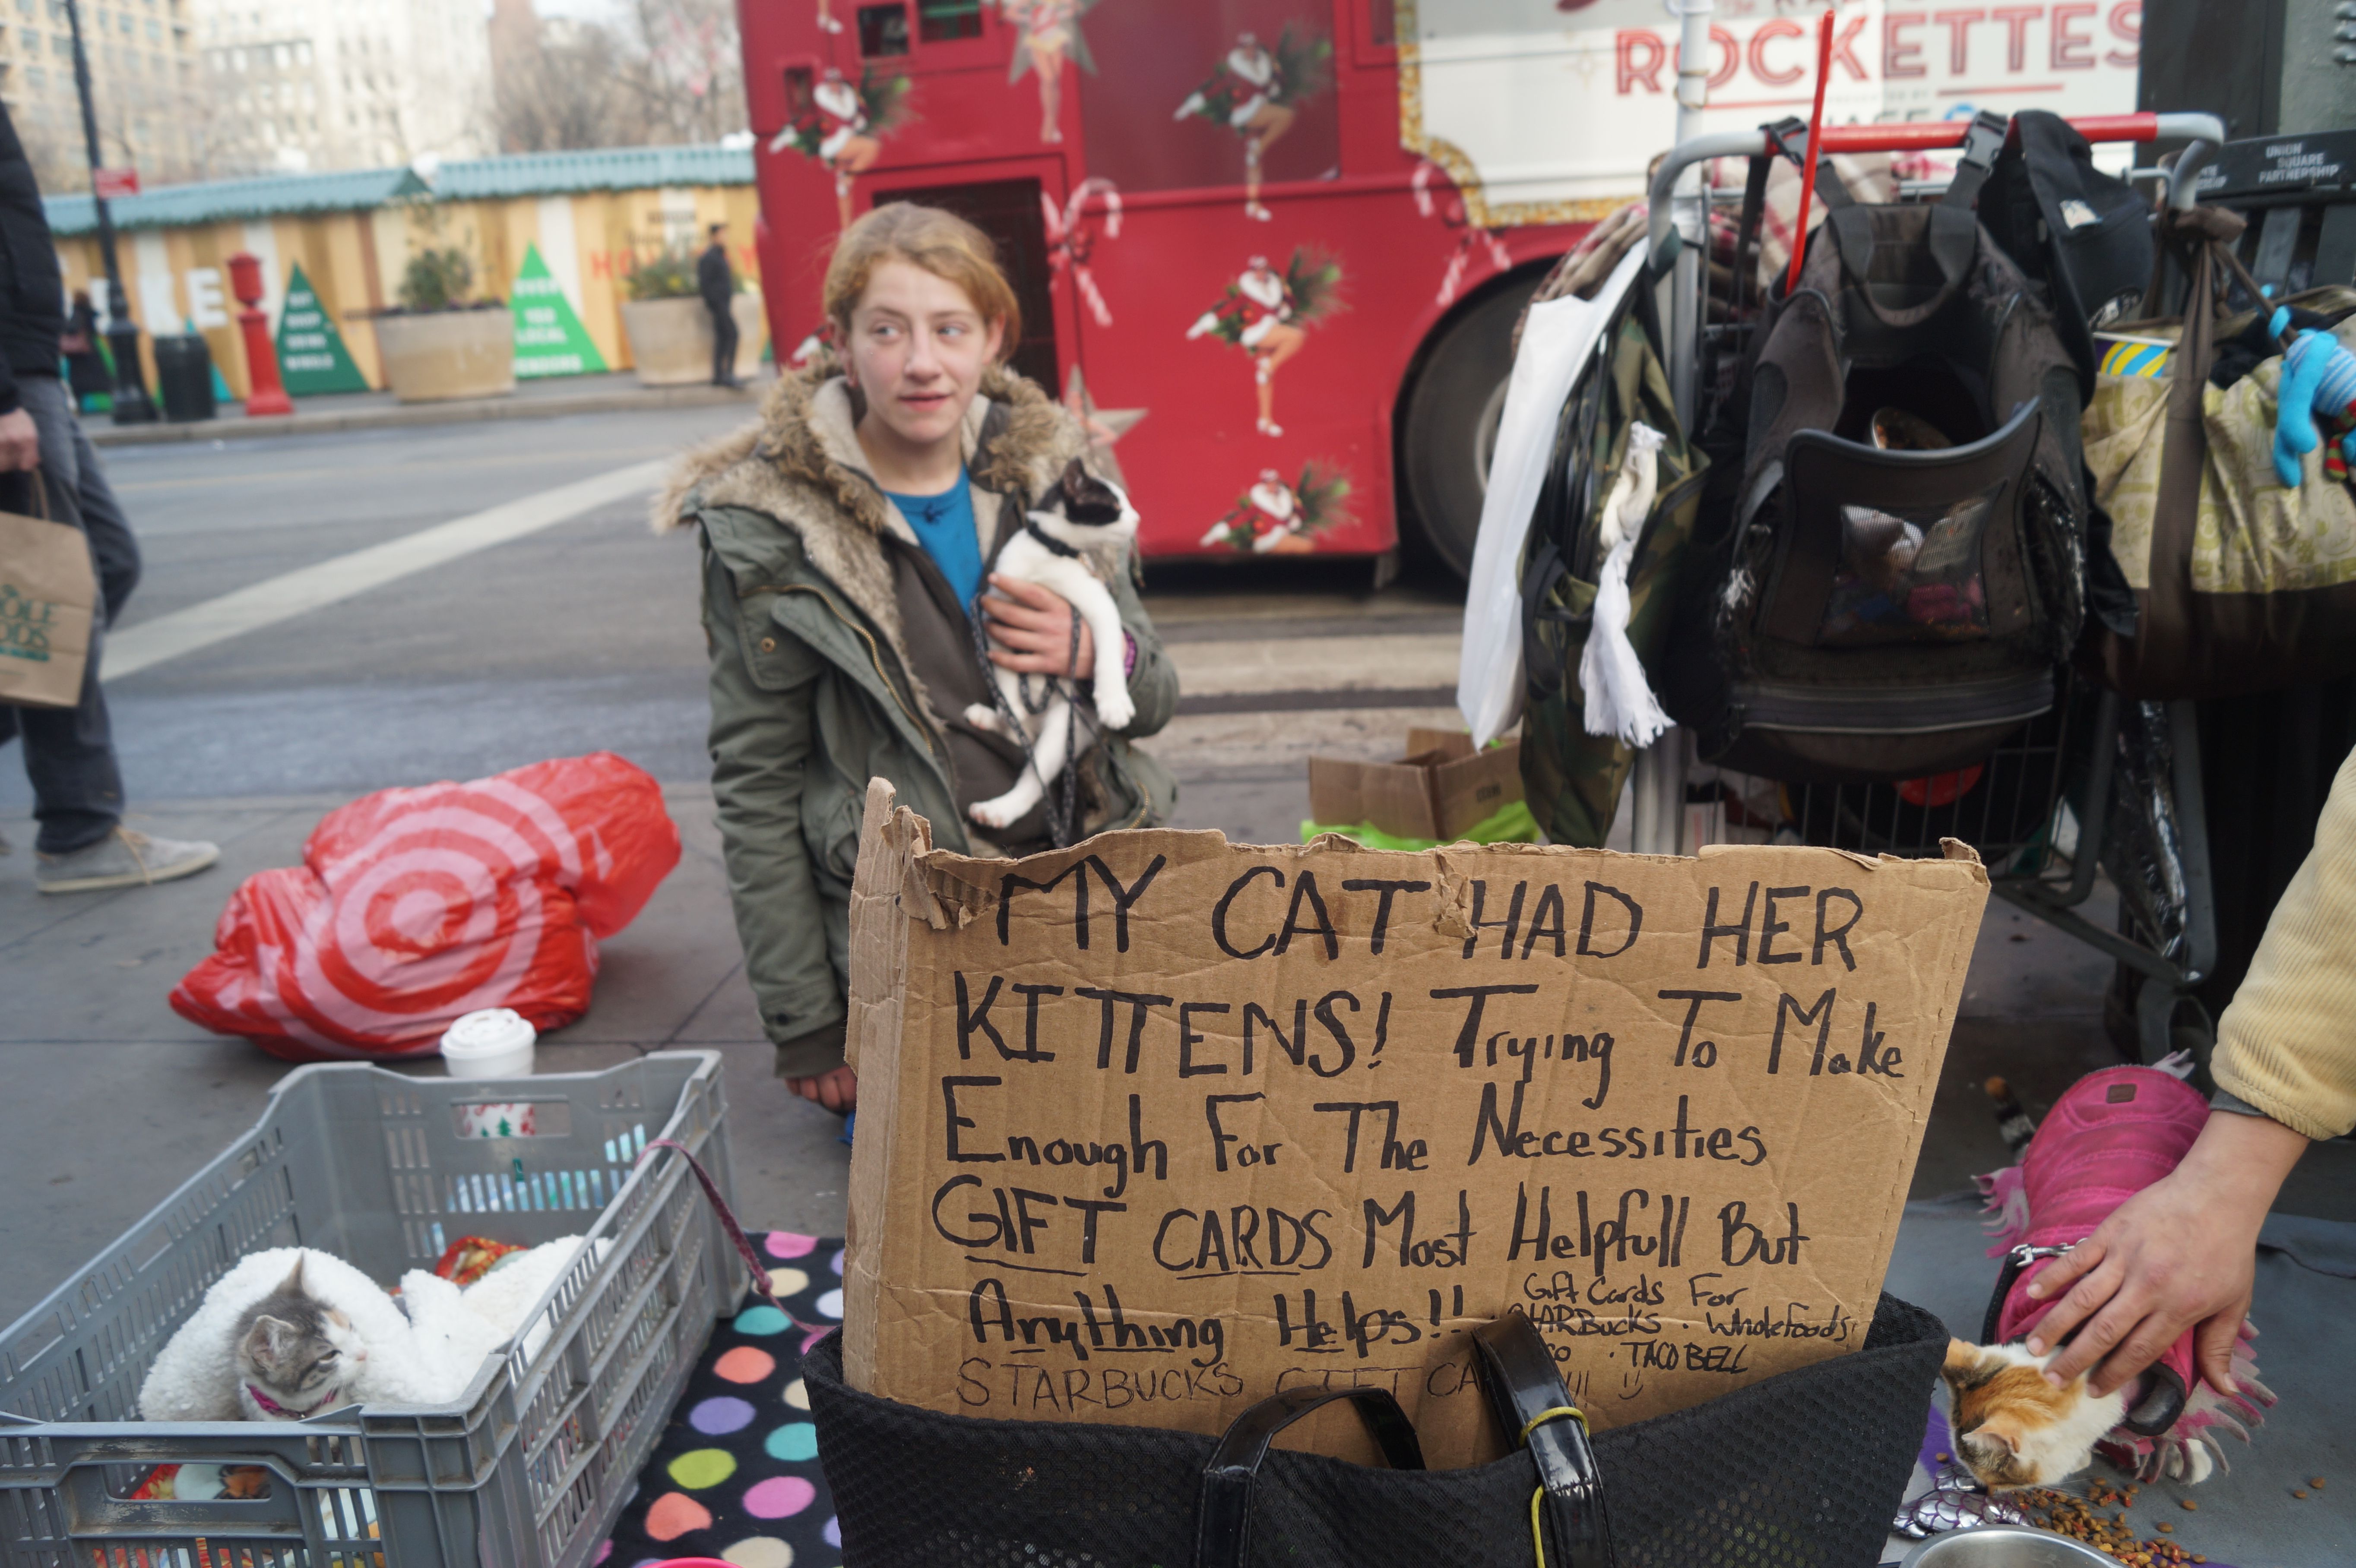 ROCKETTES
UNION
SQUARE
PARTNERSHIP
MY CAT HAD HER
KITTENS! Trying To Make
Enough For The Necessities
GIFT CARDS Most Helpfull But
Anything Helps!!
Gift Cards For
STARBucks · Wholefoods
· TACO BELL
STARBUCKS GIFT